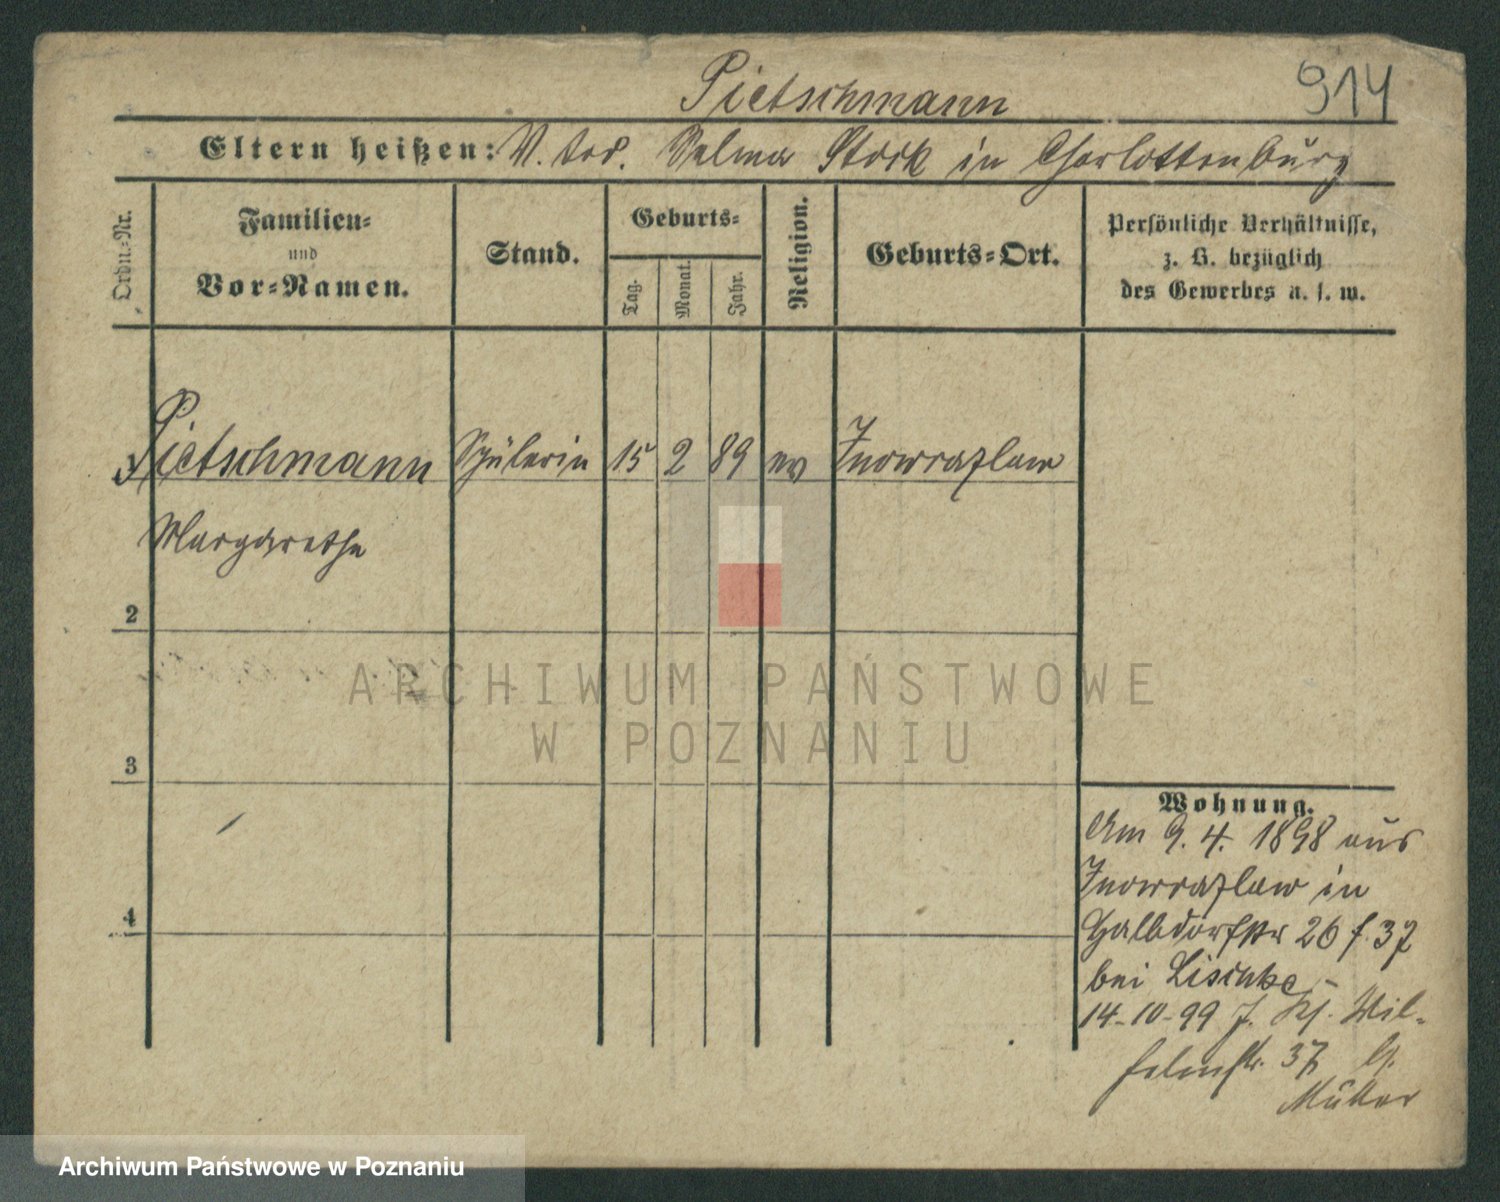 Pietschmann
914
Eltern heißen: V. tod. Selma Stock in Charlottenburg
Ordn.-Nr.
Familien-
und
Vor-Namen.
Stand.
Geburts-
Tag.
Monat.
Jahr.
Religion.
Geburts-Ort.
Persönliche Verhältnisse,
z. B. bezüglich
des Gewerbes u. s. w.
Pietschmann Schülerin 15 2 89 ev Inowrazlaw
Margarethe
2
3
4
Wohnung.
Am 9. 4. 1898 aus
Inowrazlaw in
Halbdorfstr 26 f. 37
bei Lischke,
14-10-99 J. Wil-
helmstr. 37
Müller
ARCHIWUM PAŃSTWOWE
W POZNANIU
Archiwum Państwowe w Poznaniu